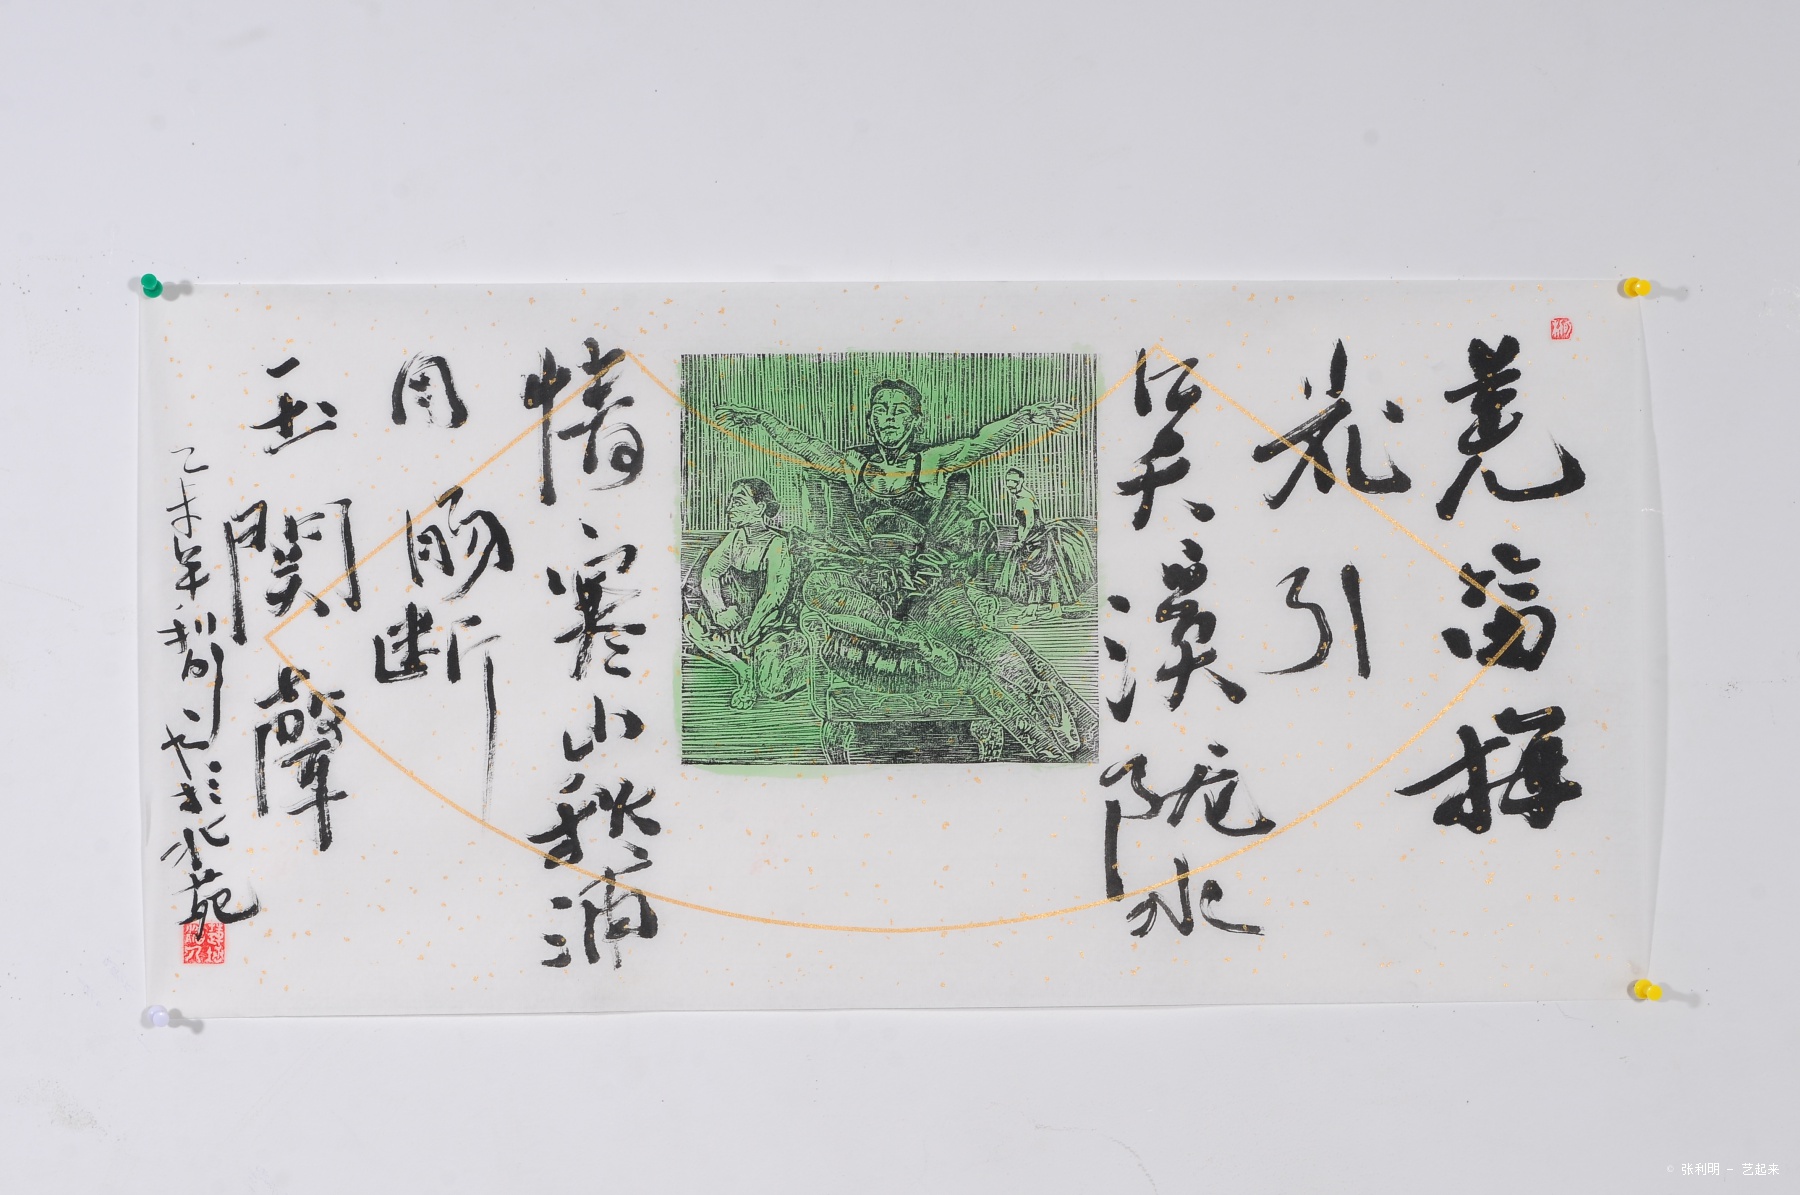 羌笛梅
花引
吴溪陇水
情寒山秋浦
月肠断
玉関聲
乙未年利明书於北苑
© 张利明 - 艺起来